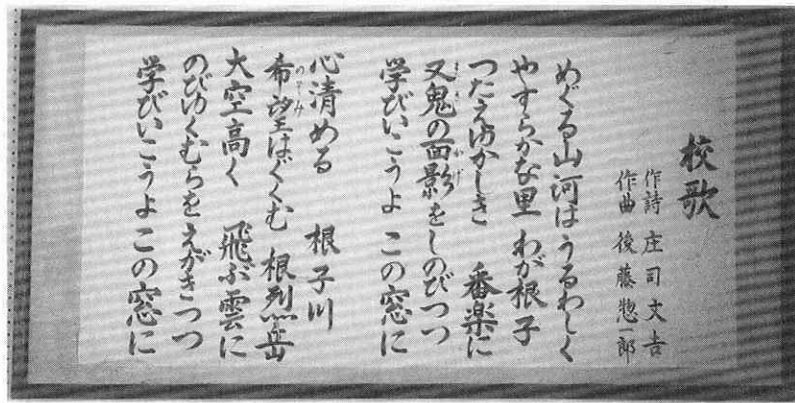 校歌
作詩 庄司文吉
作曲 後藤惣一郎
めぐる山河はうるわしく
やすらかな里 わが根子
つたえゆかしき 番楽に
又鬼の面影をしのびつつ
学びいこうよ この窓に
心清める 根子川
希望はぐくむ 根烈岳
大空高く 飛ぶ雲に
のびゆくむらをえがきつつ
学びいこうよ この窓に